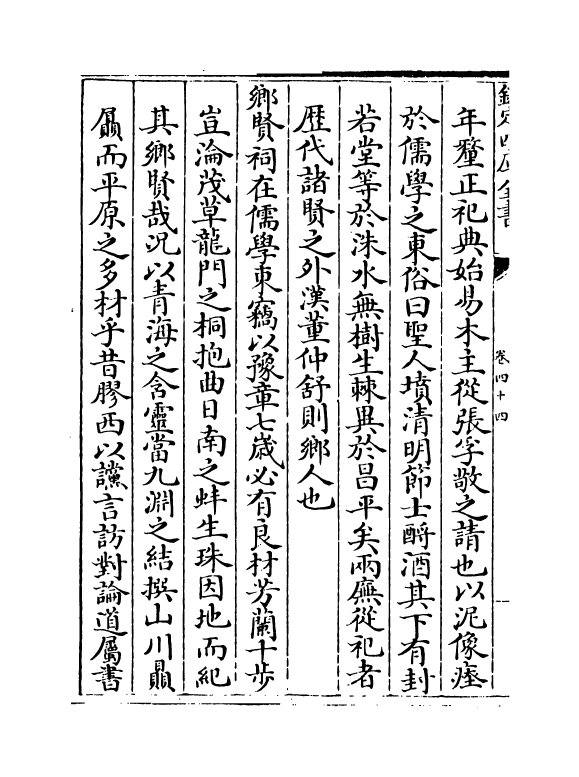 欽定四庫全書
卷四十四
年釐正祀典始易木主從張孚敬之請也以泥像瘞
於儒學之東俗曰聖人墳清明節士酹酒其下有封
若堂等於洙水無樹生棘異於昌平矣兩廡從祀者
歴代諸賢之外漢董仲舒則鄉人也
鄉賢祠在儒學東竊以豫章七歲必有良材芳蘭十步
豈淪茂草龍門之桐抱曲日南之蚌生珠因地而紀
其鄉賢哉况以青海之含靈當九淵之結撰山川贔
屭而平原之多材乎昔膠西以讜言訪對論道屬書